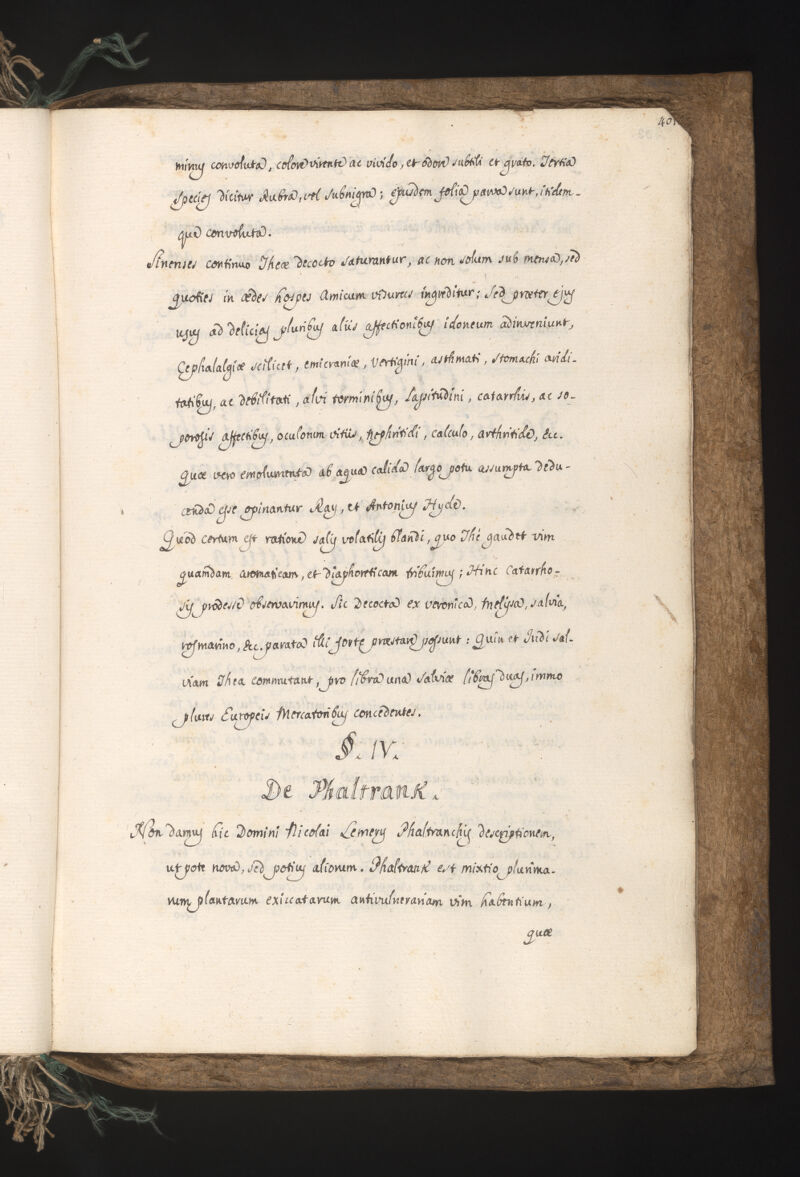 401
minus convoluta, colore virente ac vivido, et odore subtili et grato. Tertia
species dicitur Rubra, vel subnigra; ejusdem folia parva sunt, itidem-
que convoluta.
Sinenses continuo Theæ decocto saturantur, ac non solum sub mensa, sed
quoties in ædes hospes Amicum visurus ingreditur; Sed præter ejus
usus ad delicias pluribus aliis affectionibus idoneum adinveniunt,
Cephalalgiæ scilicet, emicraniæ, Vertigini, asthmati, stomachi avidi-
tatibus, ac debilitati, alvi torminibus, Lassitudini, catarrhis, ac so-
porosis affectibus, oculorum vitiis, Nephritidi, calculo, arthritide, &c.
Quæ vero emolumenta ab aqua calida largo potu assumpta dedu-
cenda esse opinantur Ray, et Antonius Hyde.
Quod certum est ratione salis volatilis blandi, quo Thé gaudet vim
quamdam aromaticam, et diaphoreticam tribuimus; Hinc Catarrho-
sis prodesse observavimus. Sic Decocta ex veronica, melyssa, salvia,
rosmarino, &c. parata illi forte præstare possunt: Quin et Indi sal-
viam Thea commutant, pro libra una Salviæ libras duas, immo
plures Europeis Mercatoribus concedentes.
§. IV.
De Phaltrank.
Non damus hic Domini Nicolai Lemery Phaltranchis descriptionem,
utpote nova, sed potius aliorum. Phaltrank est mixtio plurima-
rum plantarum exiccatarum antivulnerariam vim habentium,
quæ